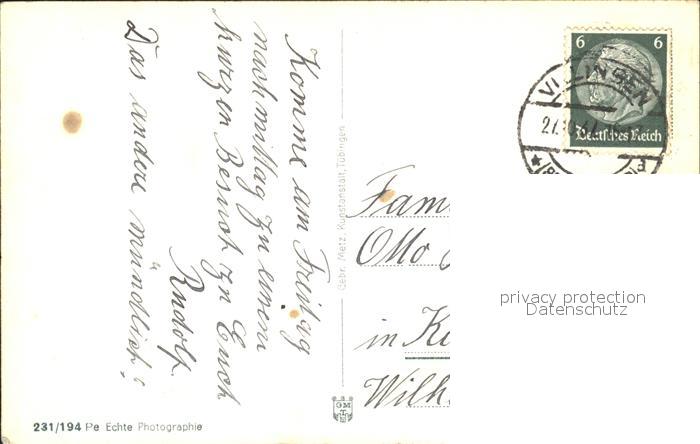 Komme am Freitag
nachmittag zu einem
kurzen Besuch zu Euch
Das andere mündlich!
Rudolf.
Gebr. Metz, Kunstanstalt, Tübingen
6 6
Deutsches Reich
VILLINGEN
Fam
Otto
in Ki
Wilh
privacy protection
Datenschutz
GMT
231/194 Pe Echte Photographie